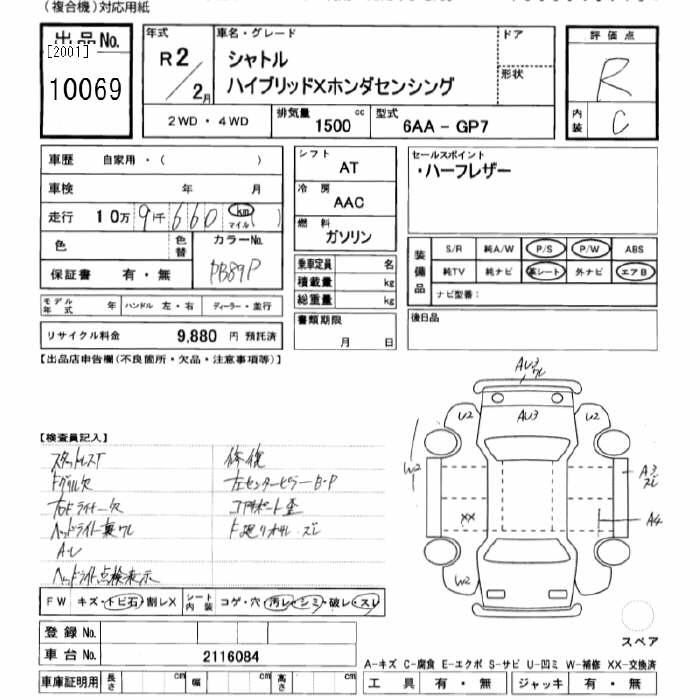 (複合機)対応用紙
出品No.
[2001]
10069
年式
R2/2月
車名・グレード
シャトル
ハイブリッドXホンダセンシング
ドア
形状
評価点
R
内装
C
2WD・4WD
排気量
1500 cc
型式
6AA－GP7
車歴 自家用・( )
車検 年 月
走行 10万 9千 660 km マイル ( )
色
色替
カラーNo.
PB89P
保証書 有・無
シフト
AT
冷房
AAC
燃料
ガソリン
乗車定員 名
積載量 kg
総重量 kg
セールスポイント
・ハーフレザー
装備品
S/R 純A/W P/S P/W ABS
純TV 純ナビ 革シート 外ナビ エアB
ナビ型番：
モデル年式 年 ハンドル 左・右 ディーラー・並行
リサイクル料金 9,880 円 預託済
書類期限
月 日
後日品
【出品店申告欄(不良箇所・欠品・注意事項等)】
【検査員記入】
ヘッドライト点検表示
左センターピラーB・P
AU3
AU3
U2
U2
W2
A3
A4
XX
W2
FW キズ・トビ石・割レX
シート内装 コゲ・穴・汚レ・シミ・破レ・スレ
登録No.
車台No. 2116084
車庫証明用 長さ cm 幅 cm 高さ cm
スペア
A-キズ C-腐食 E-エクボ S-サビ U-凹ミ W-補修 XX-交換済
工具 有・無 ジャッキ 有・無